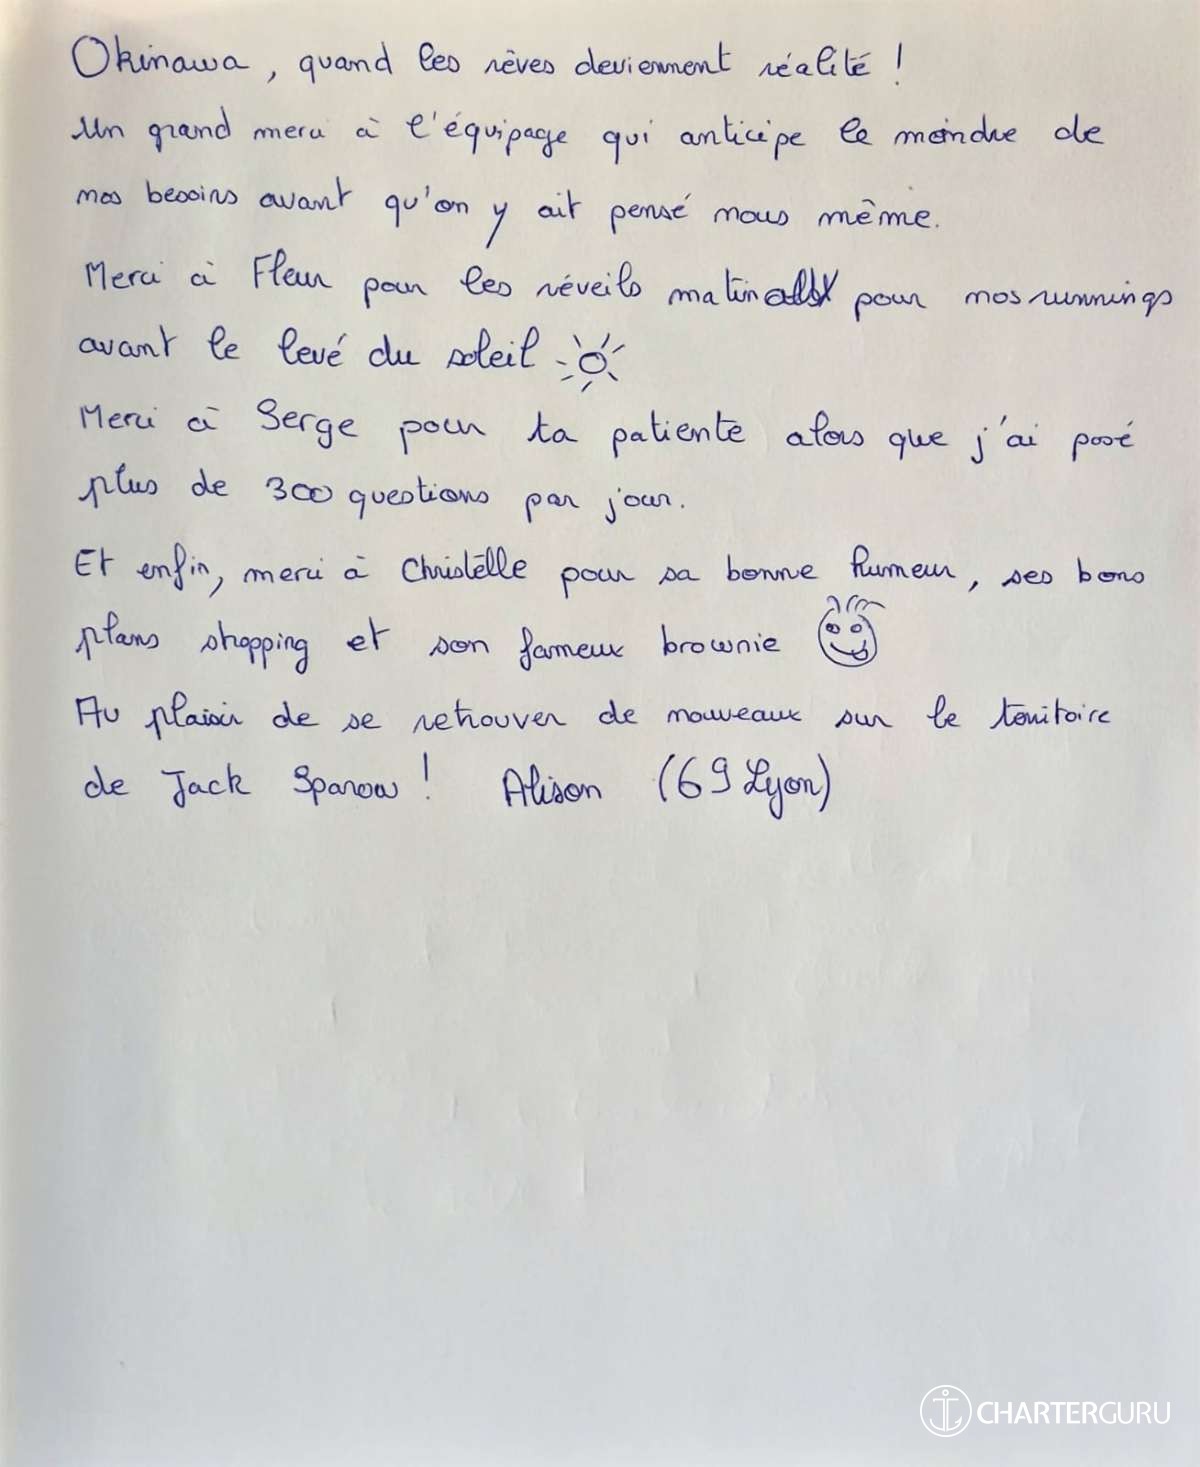 Okinawa, quand les rêves deviennent réalité !
Un grand merci à l'équipage qui anticipe le moindre de
nos besoins avant qu'on y ait pensé nous même.
Merci à Fleur pour les réveils matinaux pour nos runnings
avant le levé du soleil
Merci à Serge pour ta patiente alors que j'ai posé
plus de 300 questions par jour.
Et enfin, merci à Christèlle pour sa bonne humeur, ses bons
plans shopping et son fameux brownie
Au plaisir de se retrouver de nouveaux sur le territoire
de Jack Sparow ! Alison (69 Lyon)
CHARTERGURU